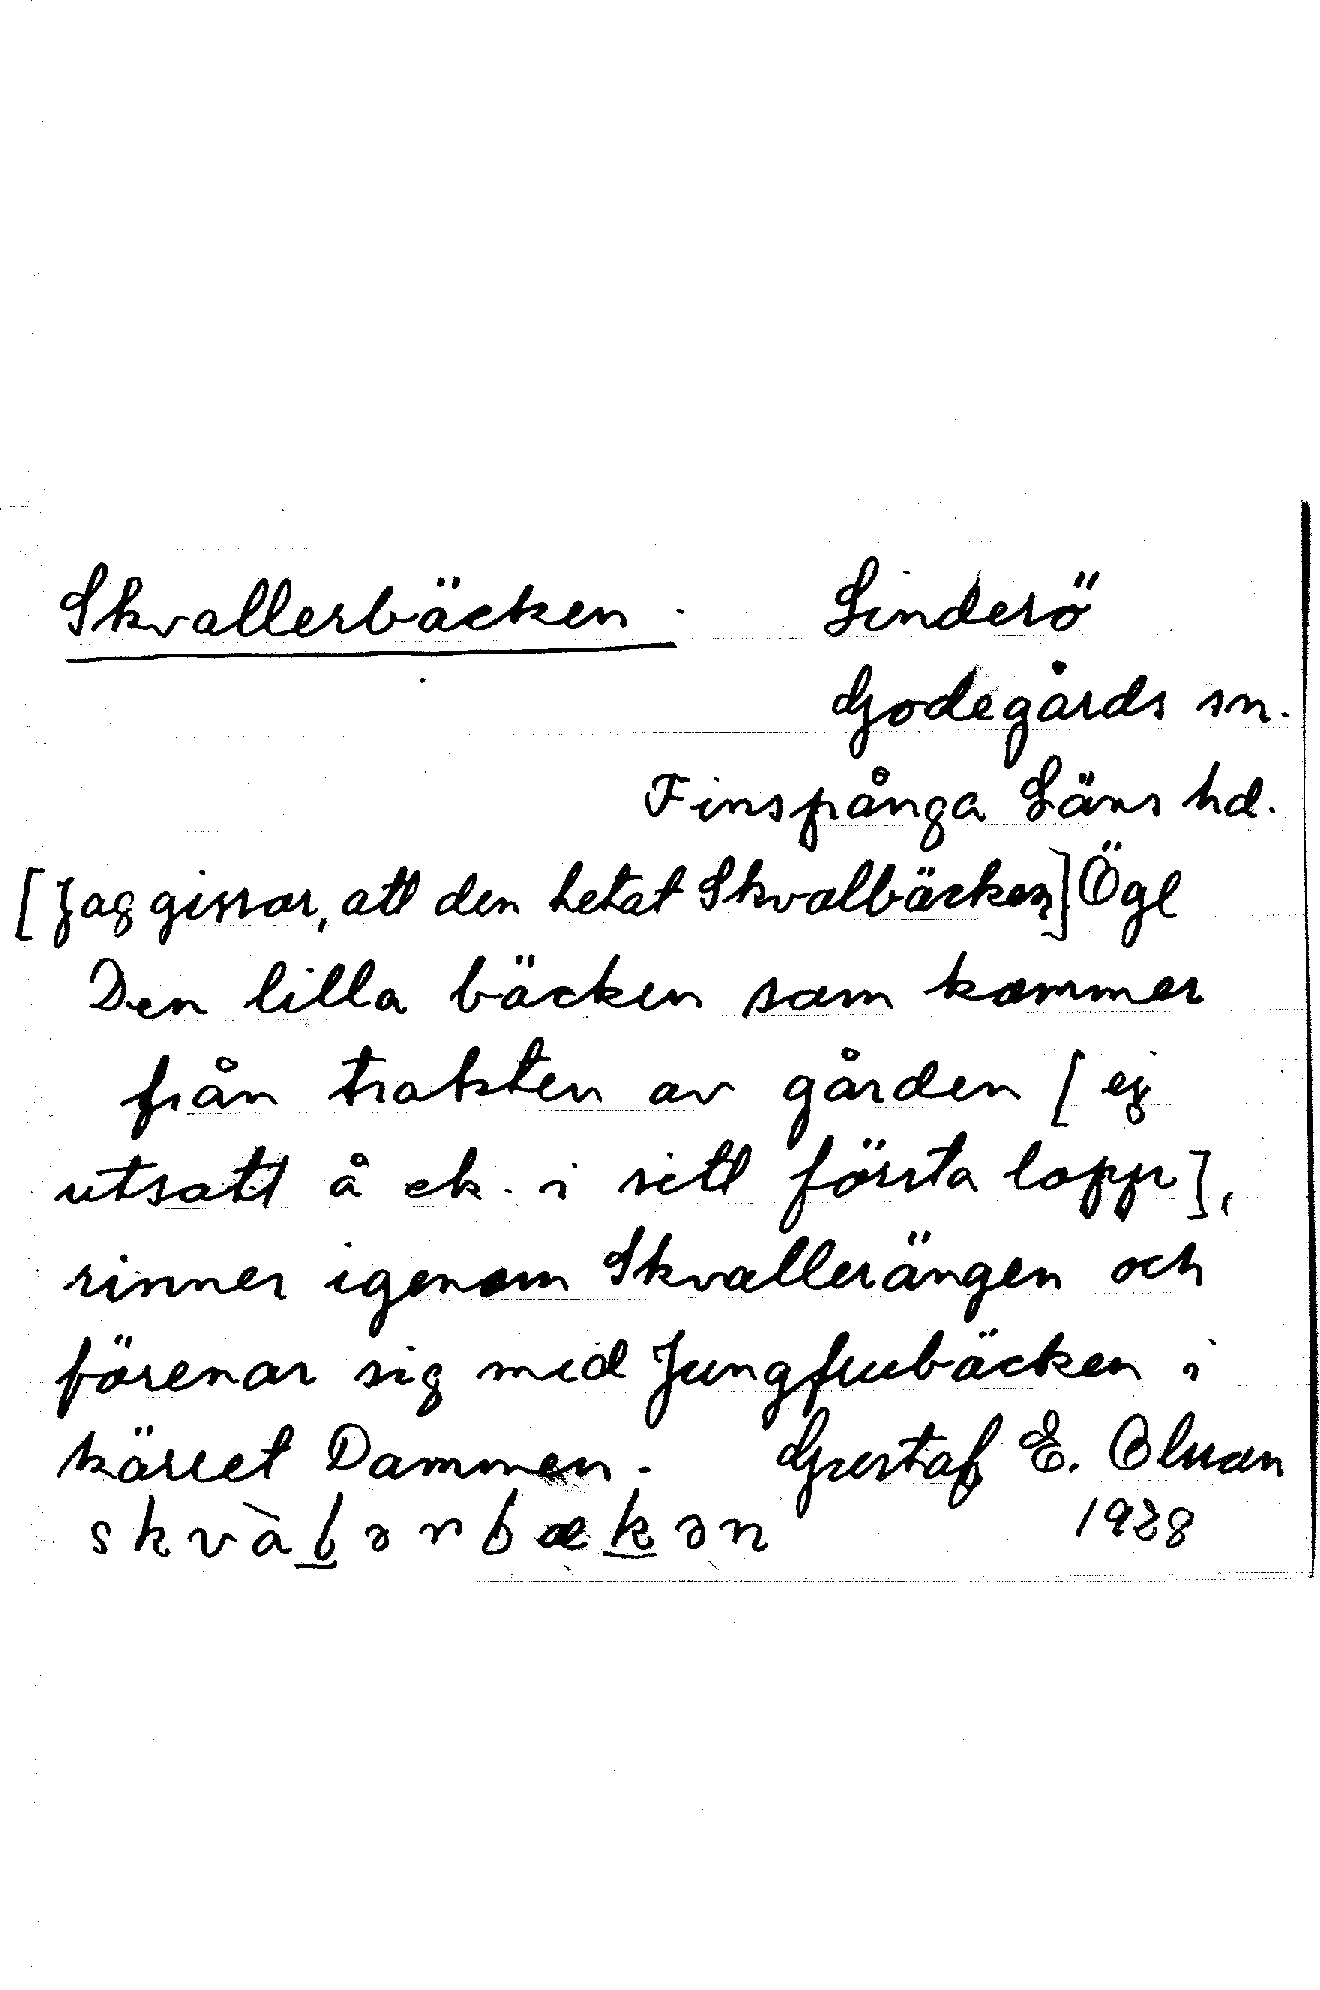 Skvallerbäcken. Linderö
Godegårds sn.
Finspånga Läns hd.
[Jag gissar, att den hetat Skvalbäcken] Ögl
Den lilla bäcken som kommer
från trakten av gården [ej
utsatt å ek. i sitt första lopp],
rinner igenom Skvallerängen och
förenar sig med Jungfrubäcken i
kärret Dammen. Gustaf E.
1928